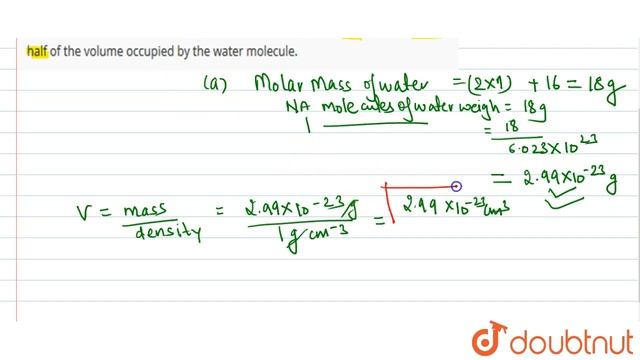 half of the volume occupied by the water molecule.
(a) Molar Mass of water = (2×1) + 16 = 18g
NA molecules of water weigh = 18g
1 = 18 / 6.023×10²³
= 2.99×10⁻²³ g
V = mass / density = 2.99×10⁻²³ g / 1 g cm⁻³ = 2.99 ×10⁻²³ cm³
doubtnut